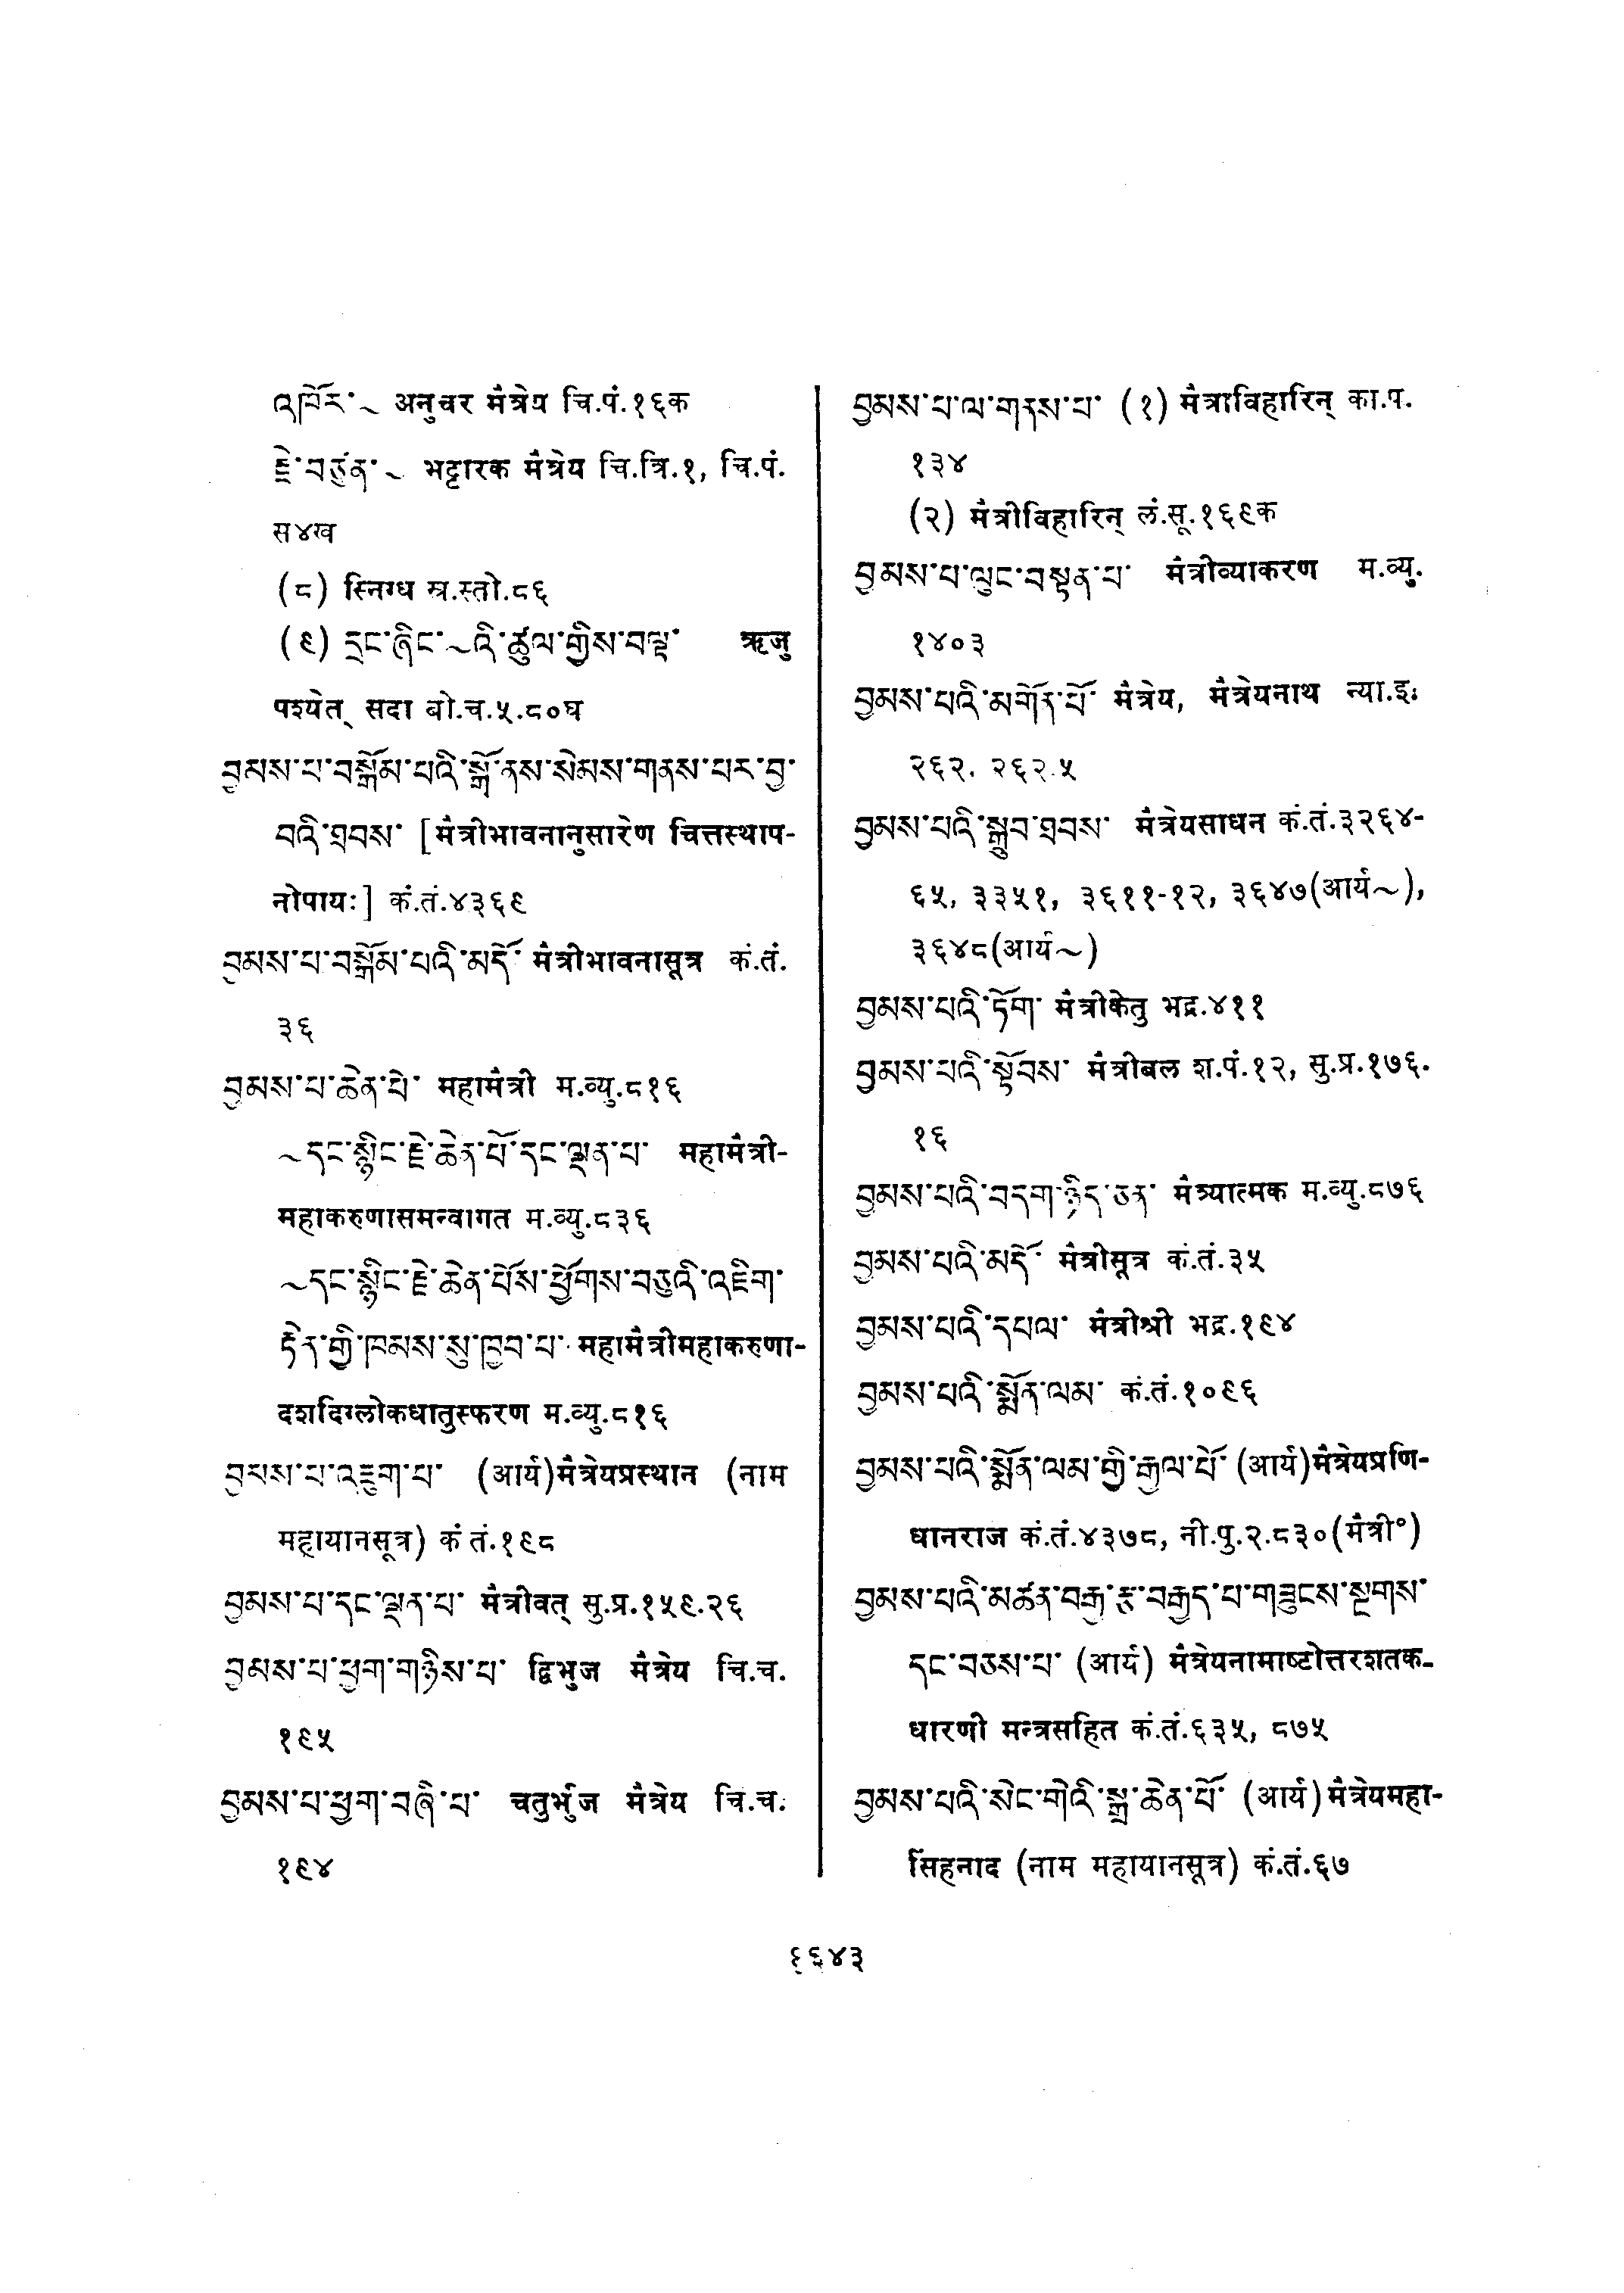 འཁོར་~ अनुचर मैत्रेय चि.पं.१६क
རྗེ་བཙུན་~ भट्टारक मैत्रेय चि.त्रि.१, चि.पं.
स४ख
(८) स्निग्ध स्र.स्तो.८६
(९) དྲང་ཞིང་~འི་ཚུལ་གྱིས་བལྟ་ ऋजु
पश्येत् सदा बो.च.५.८०घ
བྱམས་པ་བསྒོམ་པའི་སྒོ་ནས་སེམས་གནས་པར་བྱ་
བའི་ཐབས་ [मैत्रीभावनानुसारेण चित्तस्थाप-
नोपायः] कं.तं.४३६९
བྱམས་པ་བསྒོམ་པའི་མདོ་ मैत्रीभावनासूत्र कं.तं.
३६
བྱམས་པ་ཆེན་པེ་ महामैत्री म.व्यु.८१६
~དང་སྙིང་རྗེ་ཆེན་པོ་དང་ལྡན་པ་ महामैत्री-
महाकरुणासमन्वागत म.व्यु.८३६
~དང་སྙིང་རྗེ་ཆེན་པོས་ཕྱོགས་བཅུའི་འཇིག་
རྟེན་གྱི་ཁམས་སུ་ཁྱབ་པ་ महामैत्रीमहाकरुणा-
दशदिग्लोकधातुस्फरण म.व्यु.८१६
བྱམས་པ་འཇུག་པ་ (आर्य)मैत्रेयप्रस्थान (नाम
महायानसूत्र) कं तं.१९८
བྱམས་པ་དང་ལྡན་པ་ मैत्रीवत् सु.प्र.१५९.२६
བྱམས་པ་ཕྱག་གཉིས་པ་ द्विभुज मैत्रेय चि.च.
१९५
བྱམས་པ་ཕྱག་བཞི་པ་ चतुर्भुज मैत्रेय चि.च.
१९४
བྱམས་པ་ལ་གནས་པ་ (१) मैत्राविहारिन् का.प.
१३४
(२) मैत्रीविहारिन् लं.सू.१६९क
བྱམས་པ་ལུང་བསྟན་པ་ मैत्रीव्याकरण म.व्यु.
१४०३
བྱམས་པའི་མགོན་པོ་ मैत्रेय, मैत्रेयनाथ न्या.इ.
२६२. २६२.५
བྱམས་པའི་སྒྲུབ་ཐབས་ मैत्रेयसाधन कं.तं.३२६४-
६५, ३३५१, ३६११-१२, ३६४७(आर्य~),
३६४८(आर्य~)
བྱམས་པའི་ཏོག་ मैत्रीकेतु भद्र.४११
བྱམས་པའི་སྟོབས་ मैत्रीबल श.पं.१२, सु.प्र.१७६.
१६
བྱམས་པའི་བདག་ཉིད་ཅན་ मैत्र्यात्मक म.व्यु.८७६
བྱམས་པའི་མདོ་ मैत्रीसूत्र कं.तं.३५
བྱམས་པའི་དཔལ་ मैत्रीश्री भद्र.१९४
བྱམས་པའི་སྨོན་ལམ་ कं.तं.१०९६
བྱམས་པའི་སྨོན་ལམ་གྱི་རྒྱལ་པོ་ (आर्य)मैत्रेयप्रणि-
धानराज कं.तं.४३७८, नी.पु.२.८३०(मैत्री°)
བྱམས་པའི་མཚན་བརྒྱ་རྩ་བརྒྱད་པ་གཟུངས་སྔགས་
དང་བཅས་པ་ (आर्य) मैत्रेयनामाष्टोत्तरशतक-
धारणी मन्त्रसहित कं.तं.६३५, ८७५
བྱམས་པའི་སེང་གེའི་སྒྲ་ཆེན་པོ་ (आर्य)मैत्रेयमहा-
सिंहनाद (नाम महायानसूत्र) कं.तं.६७
१६४३